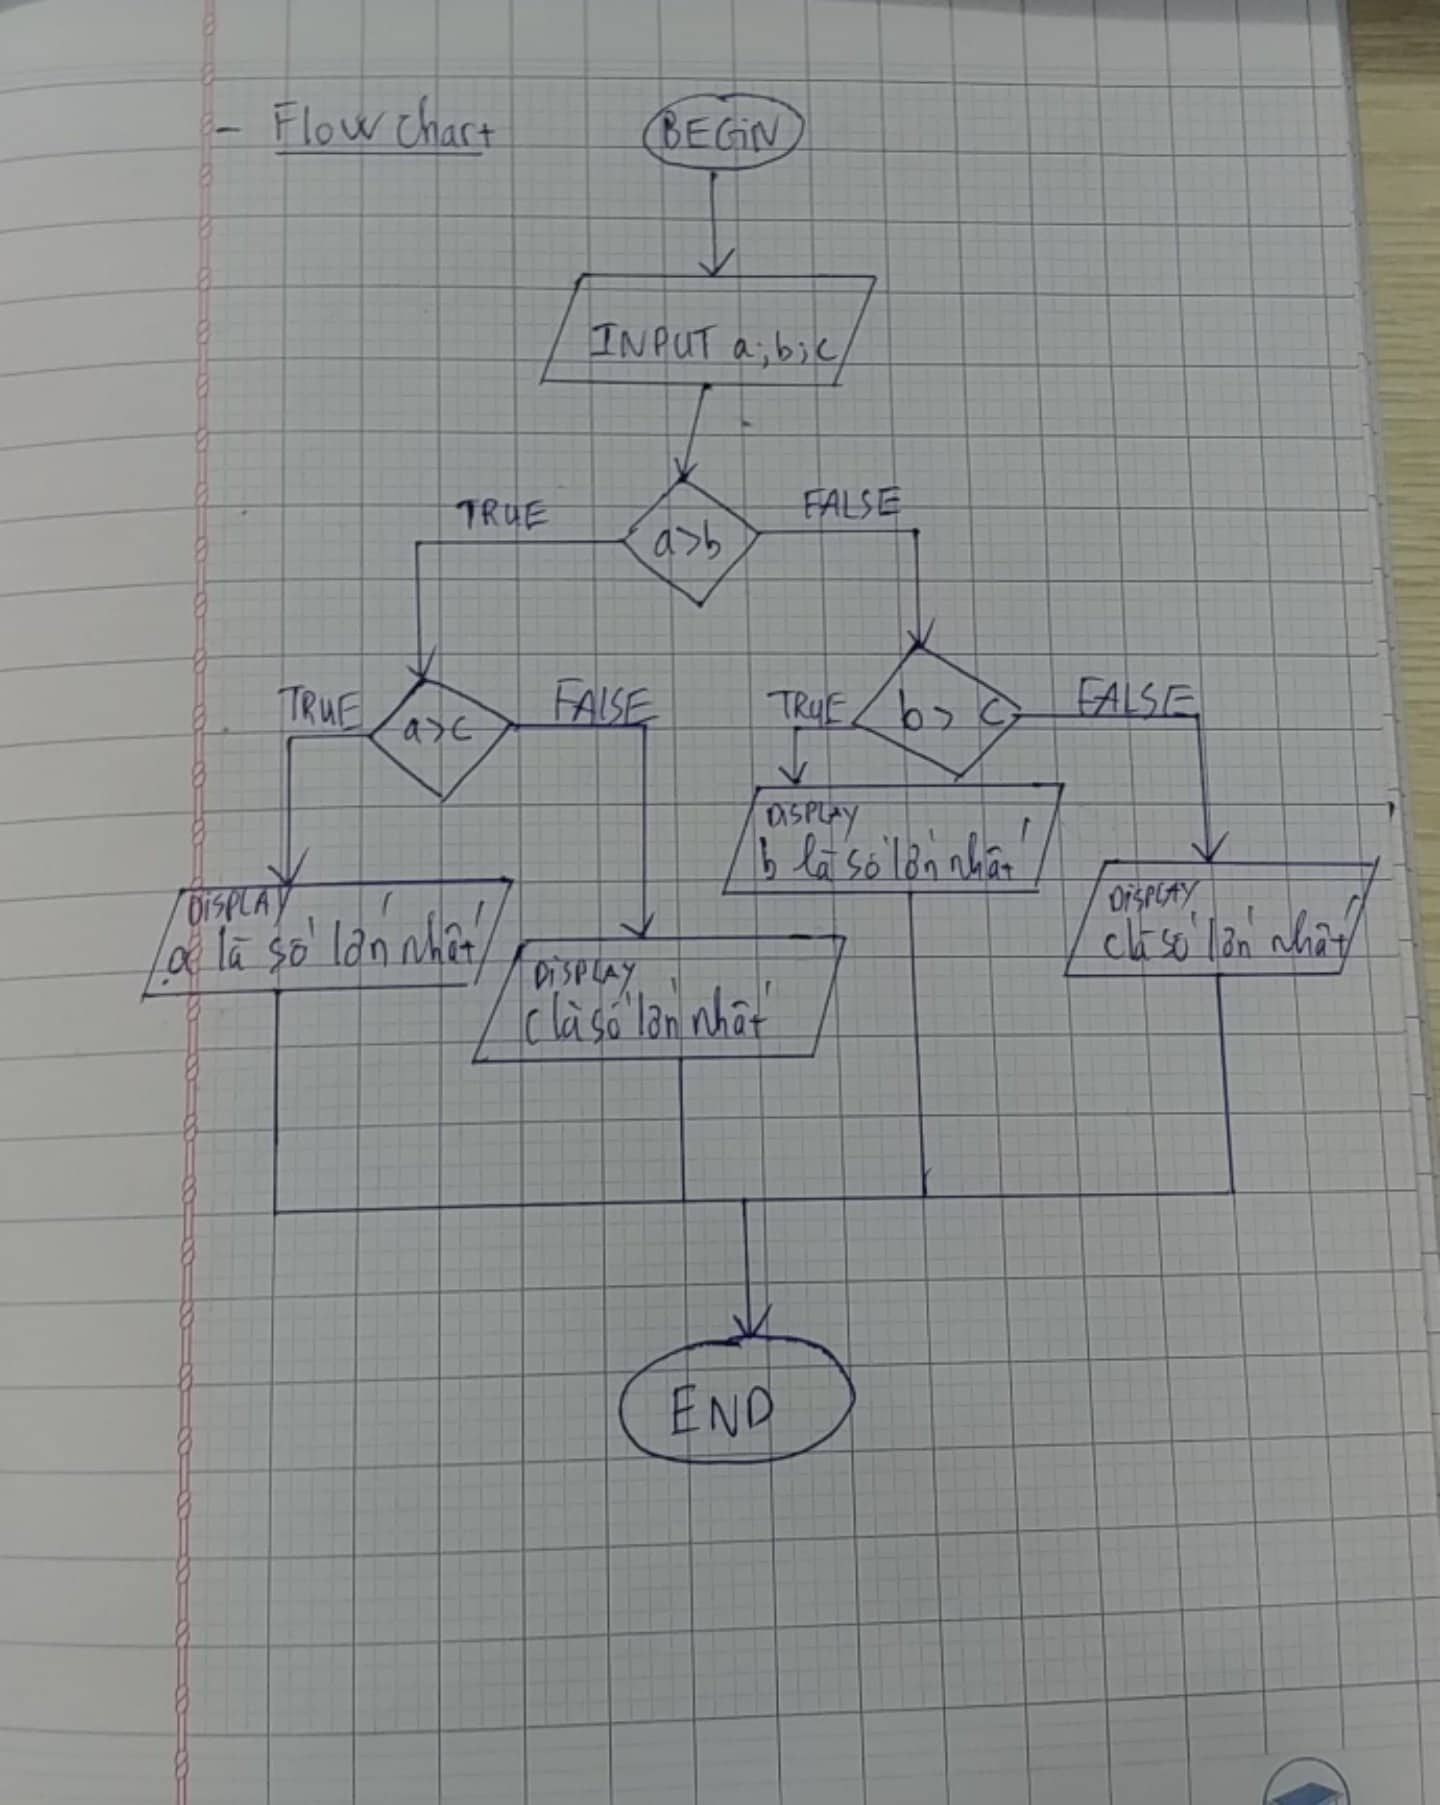 - Flow chart
BEGIN
INPUT a;b;c
a>b
TRUE
FALSE
a>c
TRUE
FALSE
b> c
TRUE
FALSE
DISPLAY
a là số lớn nhất
DISPLAY
c là số lớn nhất
DISPLAY
b là số lớn nhất
DISPLAY
c là số lớn nhất
END